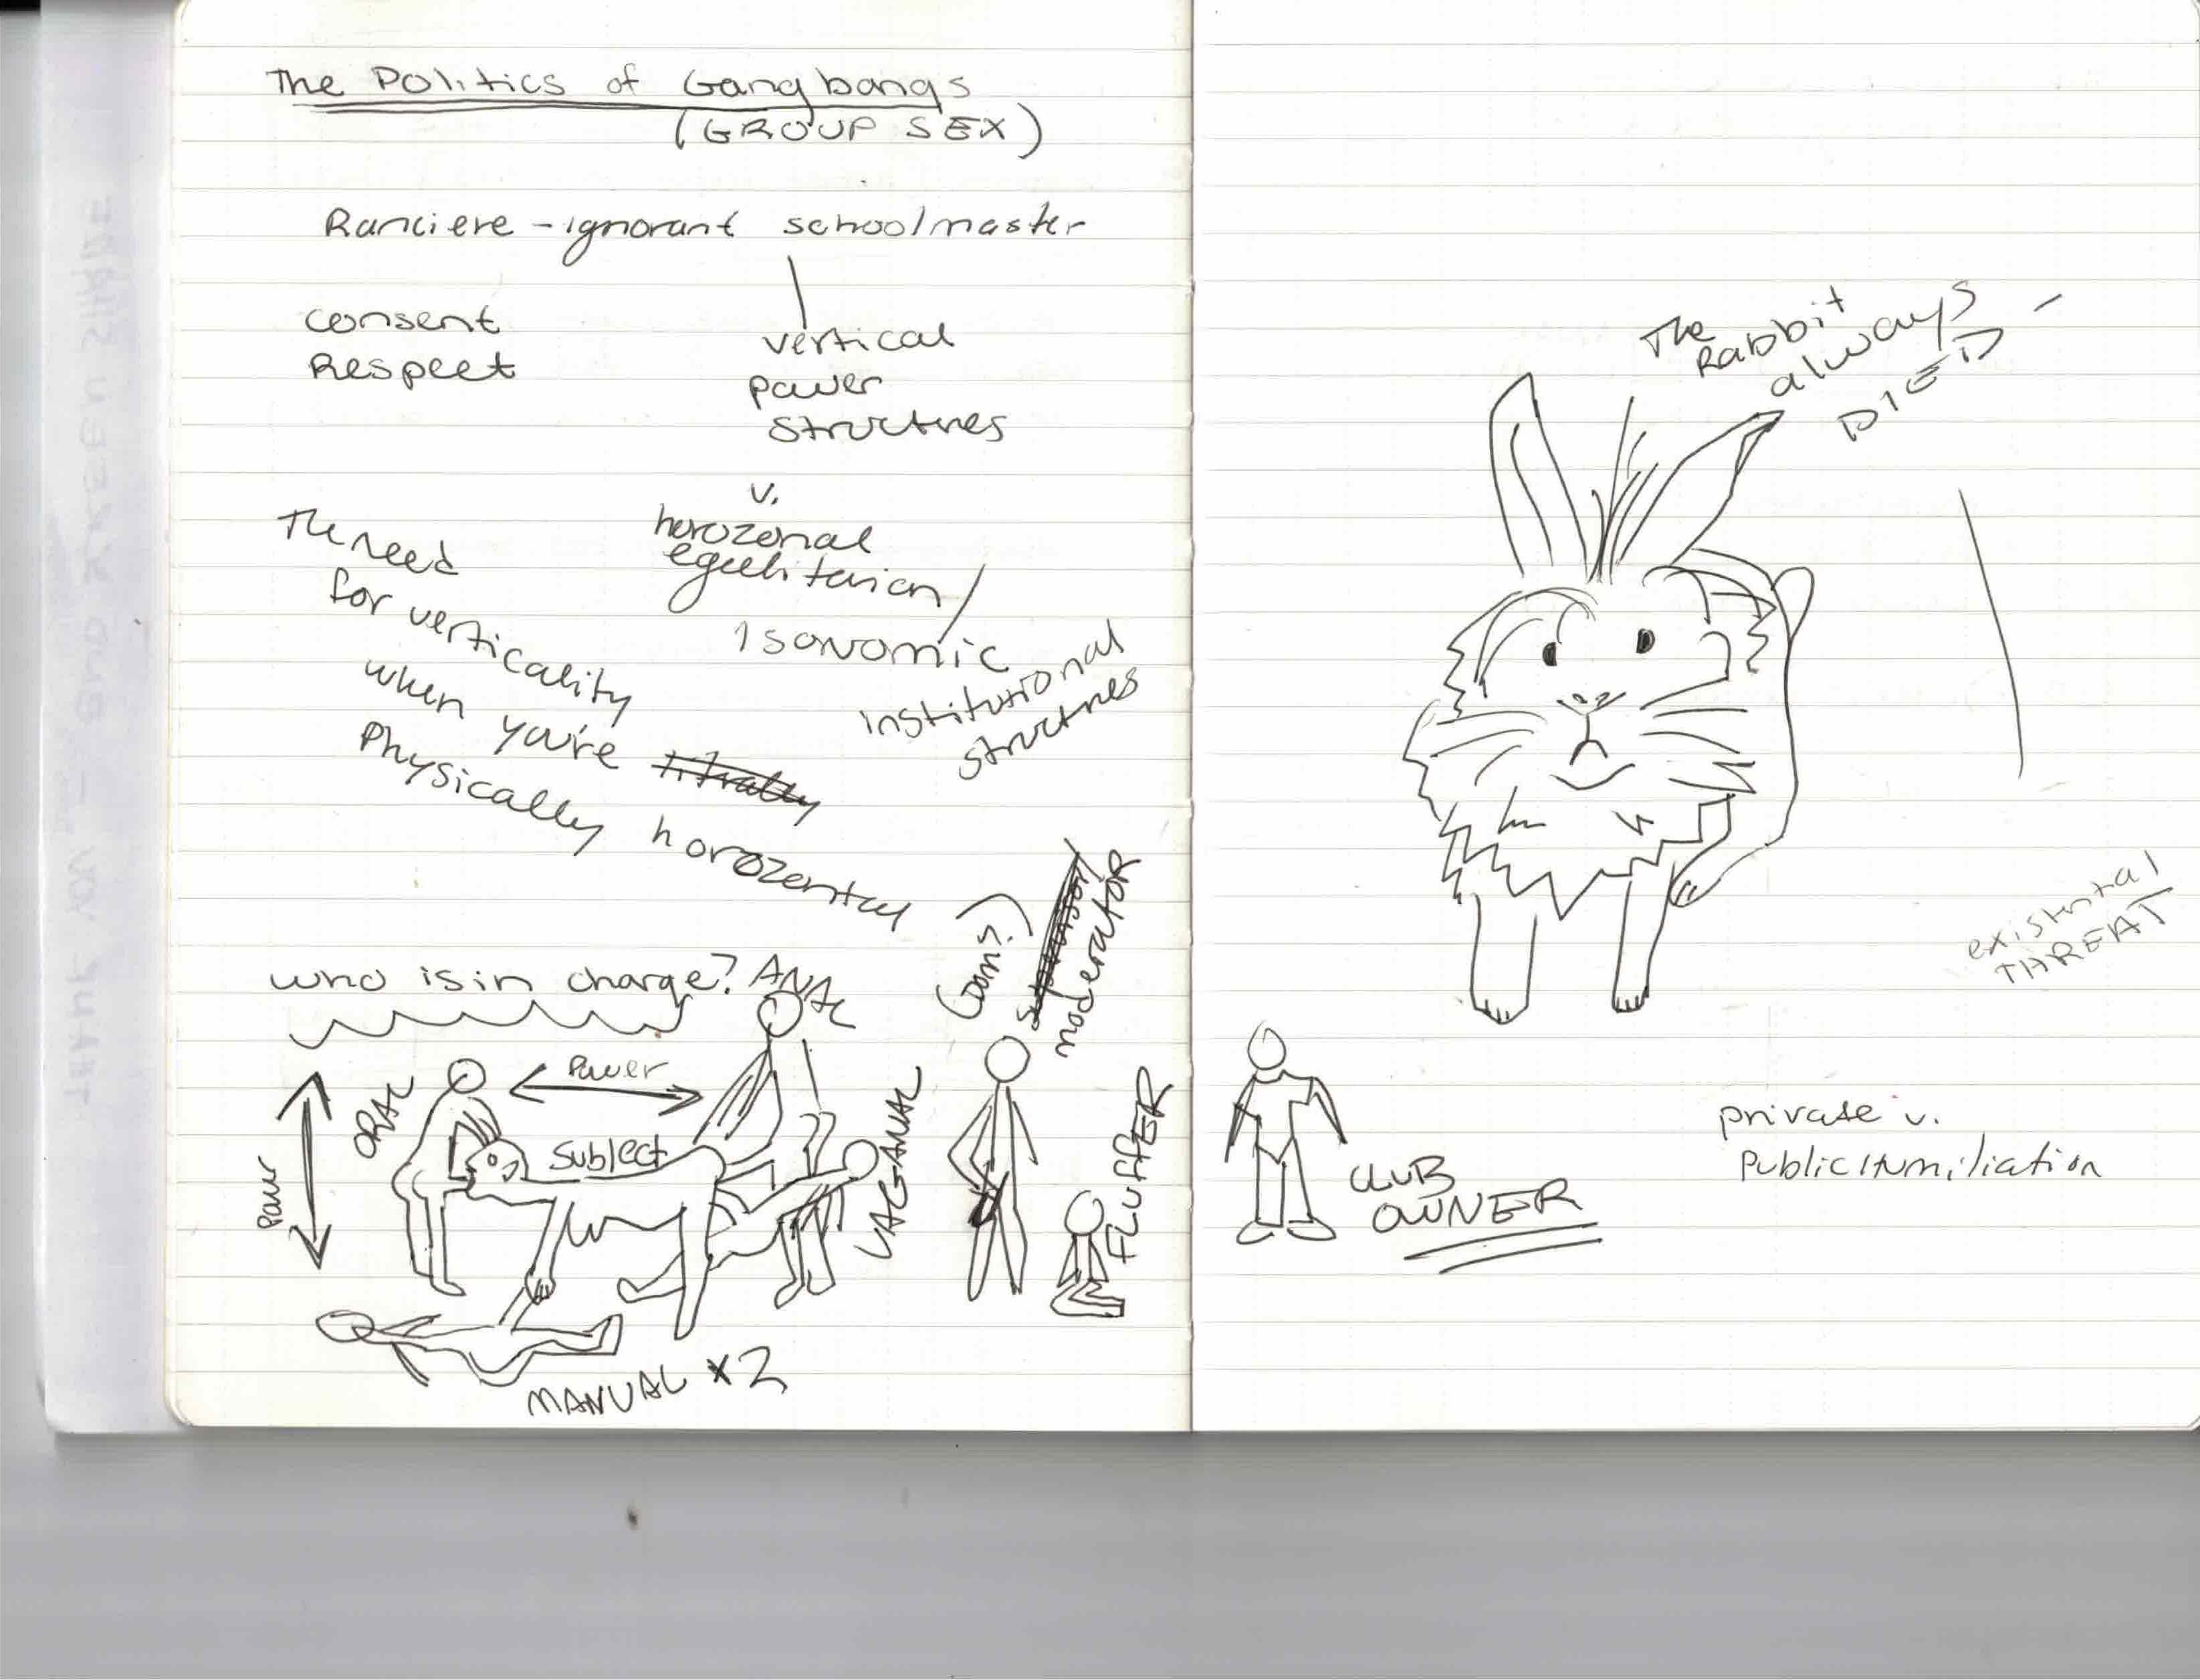 The Politics of Gangbangs
(GROUP SEX)
Ranciere - ignorant schoolmaster
consent
Respect
vertical
power
structures
v.
horozonal
egalitarian/
isonomic
institutional
structures
The need
for verticality
when you're
Physically horozental
who is in charge?
ANAL
(Goons?)
moderator
Power
Power
ORAL
Subject
VAGANAL
FLUFFER
MANUAL x2
The
Rabbit
always
DIED -
existental
THREAT
CLUB
OWNER
private v.
Public Humiliation